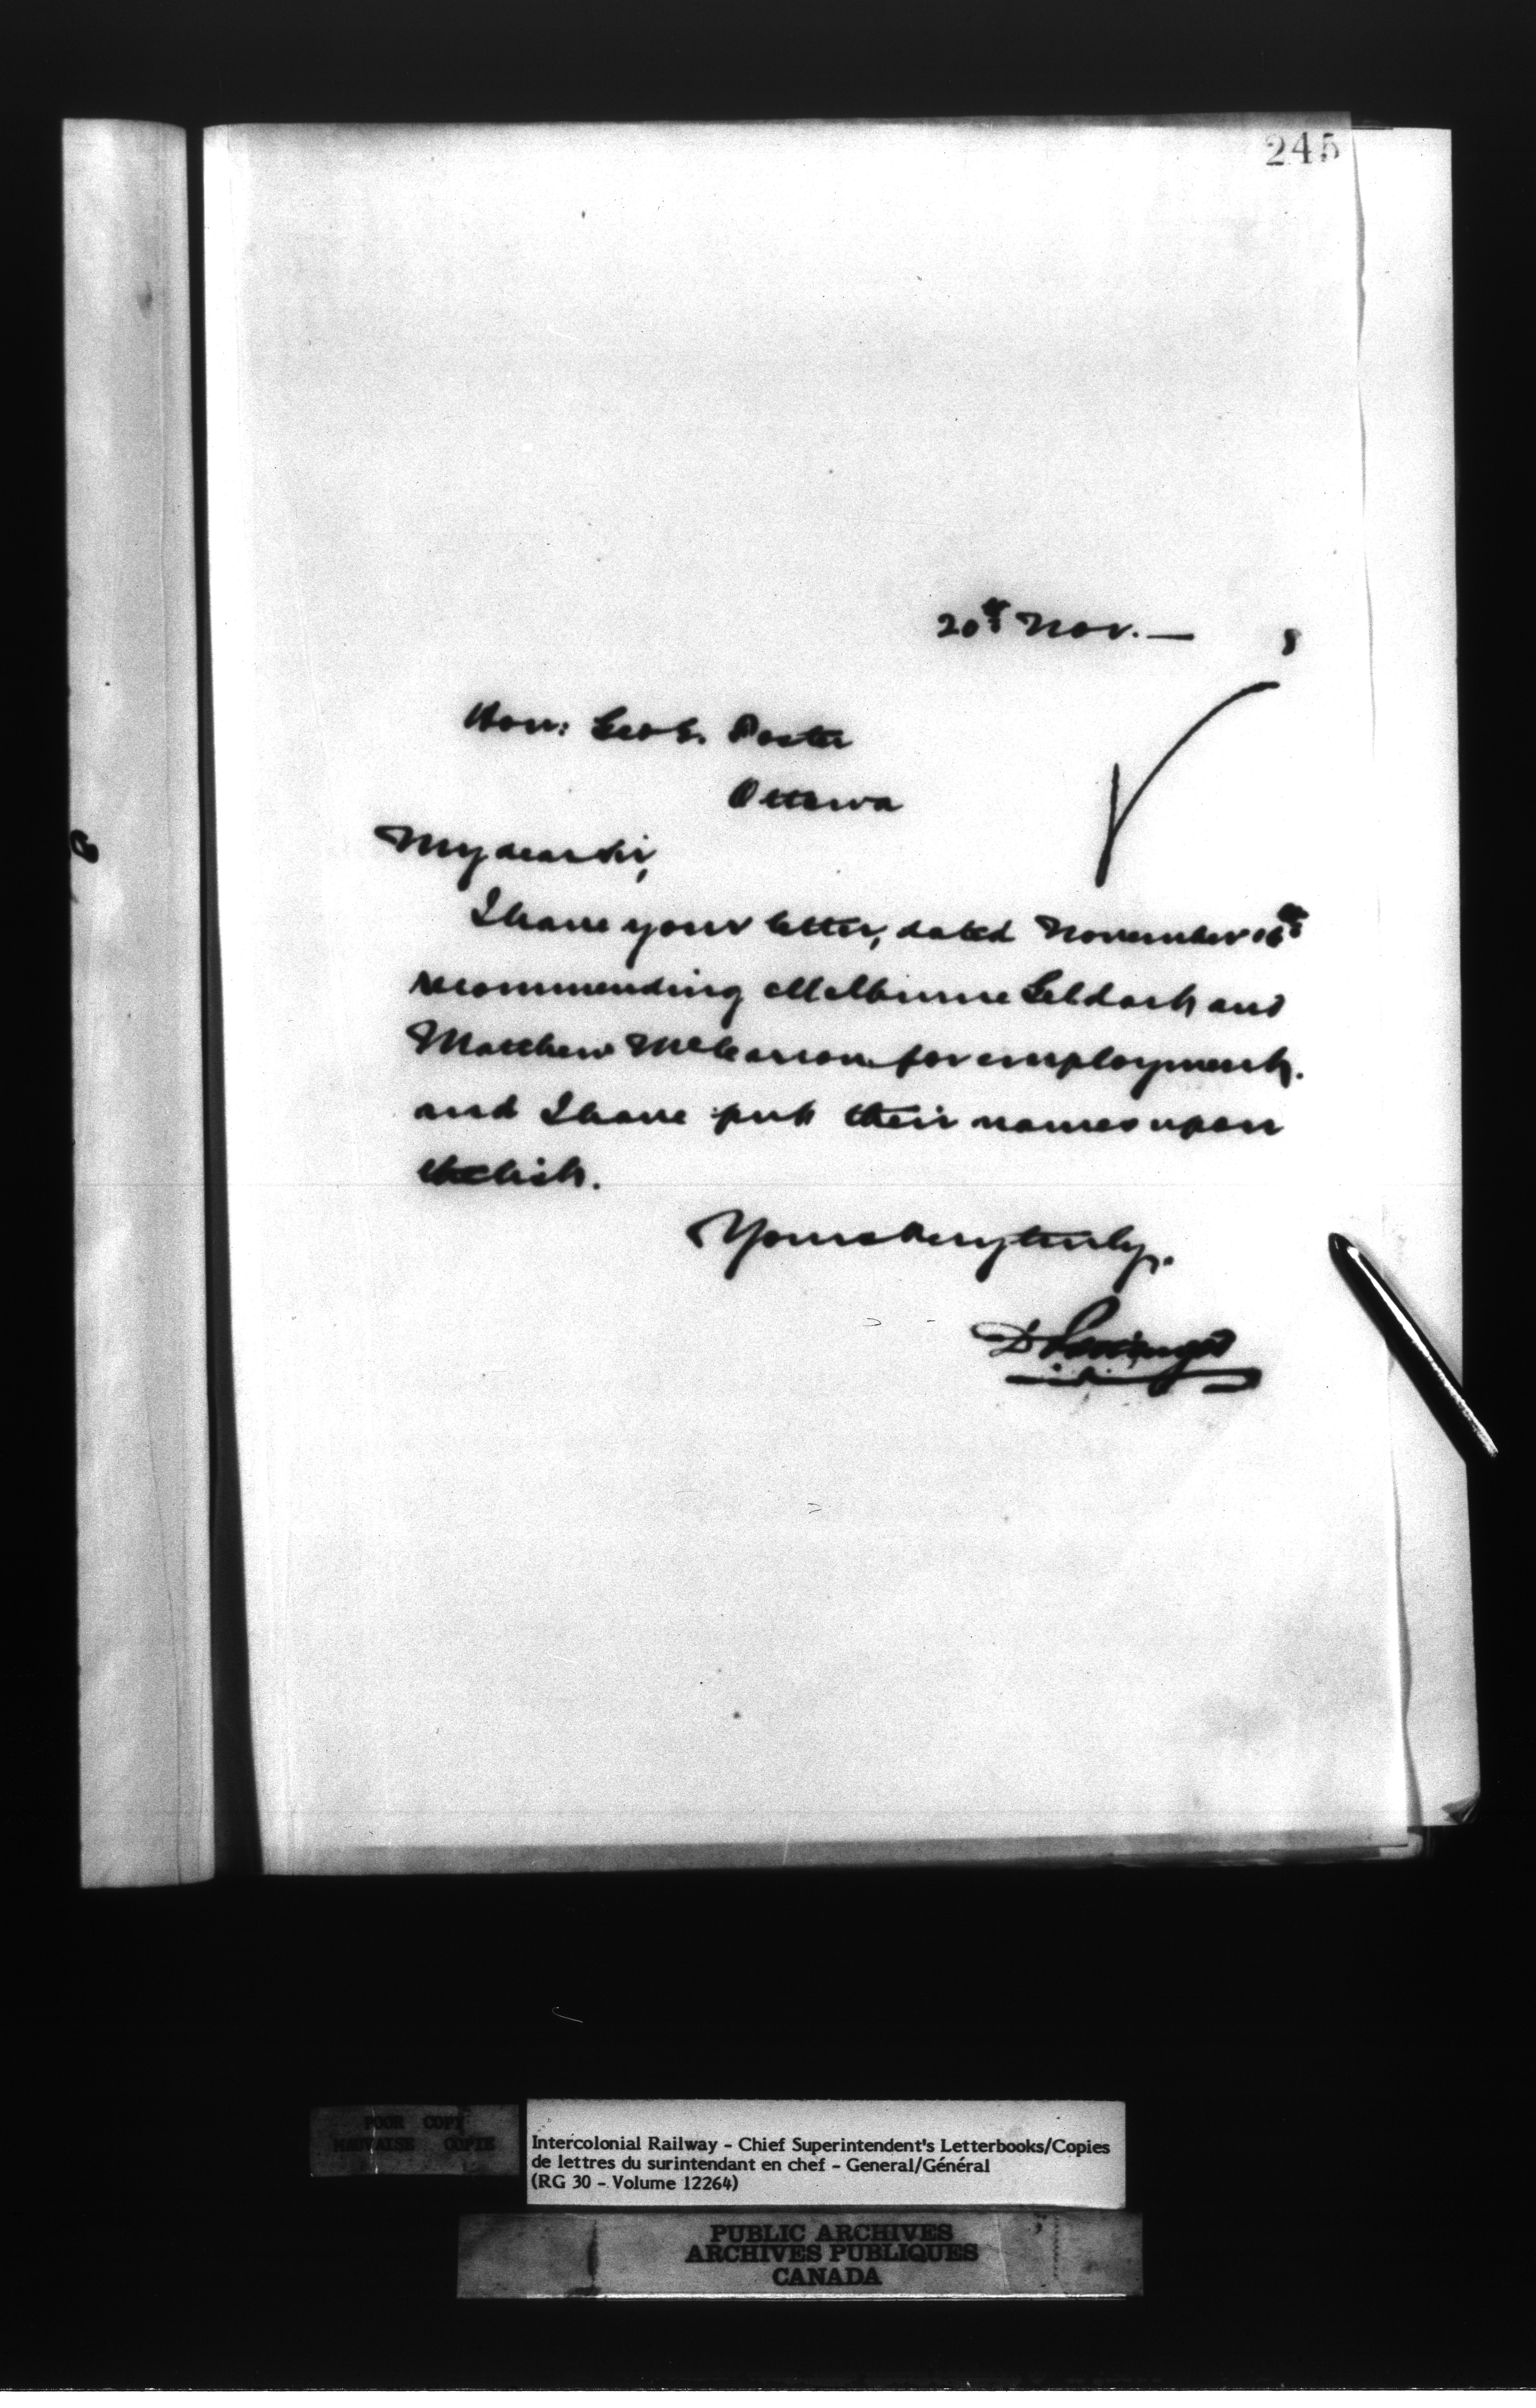 245
20th Nov. — 8
Hon: Geo E. Foster
Ottawa
My dear Sir,
I have your letter, dated November 16th
recommending Melburne Geldart and
Matthew for employment.
and I have put their names upon
the list.
Yours very truly,
D Pottinger
POOR COPY
MAUVAISE COPIE
Intercolonial Railway - Chief Superintendent's Letterbooks/Copies
de lettres du surintendant en chef - General/Général
(RG 30 - Volume 12264)
PUBLIC ARCHIVES
ARCHIVES PUBLIQUES
CANADA